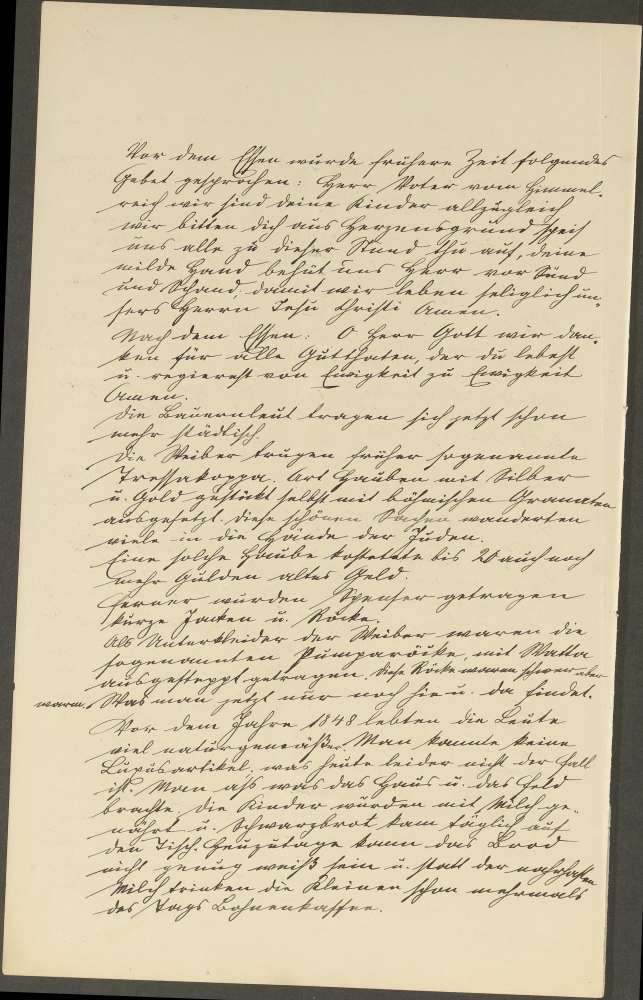 Vor dem Essen wurde frühere Zeit folgendes
Gebet gesprochen: Herr Vater vom Himmel-
reich wir sind deine Kinder allzugleich
wir bitten dich aus Herzensgrund speis
uns alle zu dieser Stund thu auf, deine
milde Hand behüt uns Herr vor Sünd
und Schand, damit wir leben seliglich un-
sers Herrn Jesu Christi Amen.
Nach dem Essen: O Herr Gott wir dan-
ken für alle Gutthaten, der du lebest
u. regierest von Ewigkeit zu Ewigkeit
Amen.
Die Bauernleut tragen sich jetzt schon
mehr städtisch.
Die Weiber trugen früher sogenannte
Tressakoppa. Art Hauben mit Silber
u. Gold gestickt selbst mit böhmischen Granaten
ausgesetzt. Diese schönen Sachen wanderten
viele in die Hände der Juden.
Eine solche Haube kostetete bis 20 auch noch
mehr Gulden altes Geld.
Ferner wurden Spenser getragen
kurze Jacken u. Röcke.
Als Unterkleider der Weiber waren die
sogenannten Pumparöcke, mit Watta
ausgesteppt getragen. Diese Röcke waren schwer aber
warm. Was man jetzt nur noch hie u. da findet.
Vor dem Jahre 1848 lebten die Leute
viel naturgemäßer. Man kannte keine
Luxusartikel, was heute leider nicht der Fall
ist. Man ass was das Haus u. das Feld
brachte, die Kinder wurden mit Milch ge-
nährt u. Schwarzbrot kam täglich auf
den Tisch. Heuzutage kann das Brod
nicht genug weiß sein u. statt der nahrhaften
Milch trinken die Kleinen schon mehrmals
des Tags Bohnenkaffee.